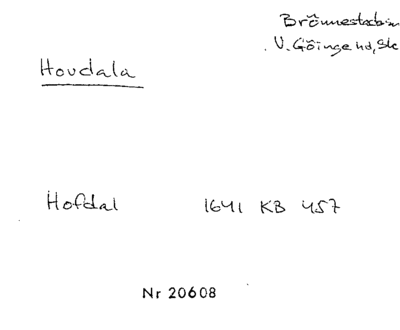 Brönnestads sn
V. Göinge hd, Sk
Hovdala
Hofdal 1641 KB 457
Nr 20608